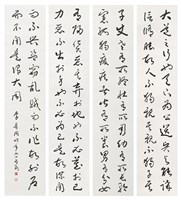 大道之行也天下為公選賢與能講
信修睦故人不獨親其親不獨子其
子使老有所終壯有所用幼有所長矜
寡孤獨廢疾者皆有所養男有分女
有歸貨惡其棄於地也不必藏於己
力惡其不出於身也不必為己是故謀閉
而不興盜竊亂賊而不作故外戶
而不閉是謂大同